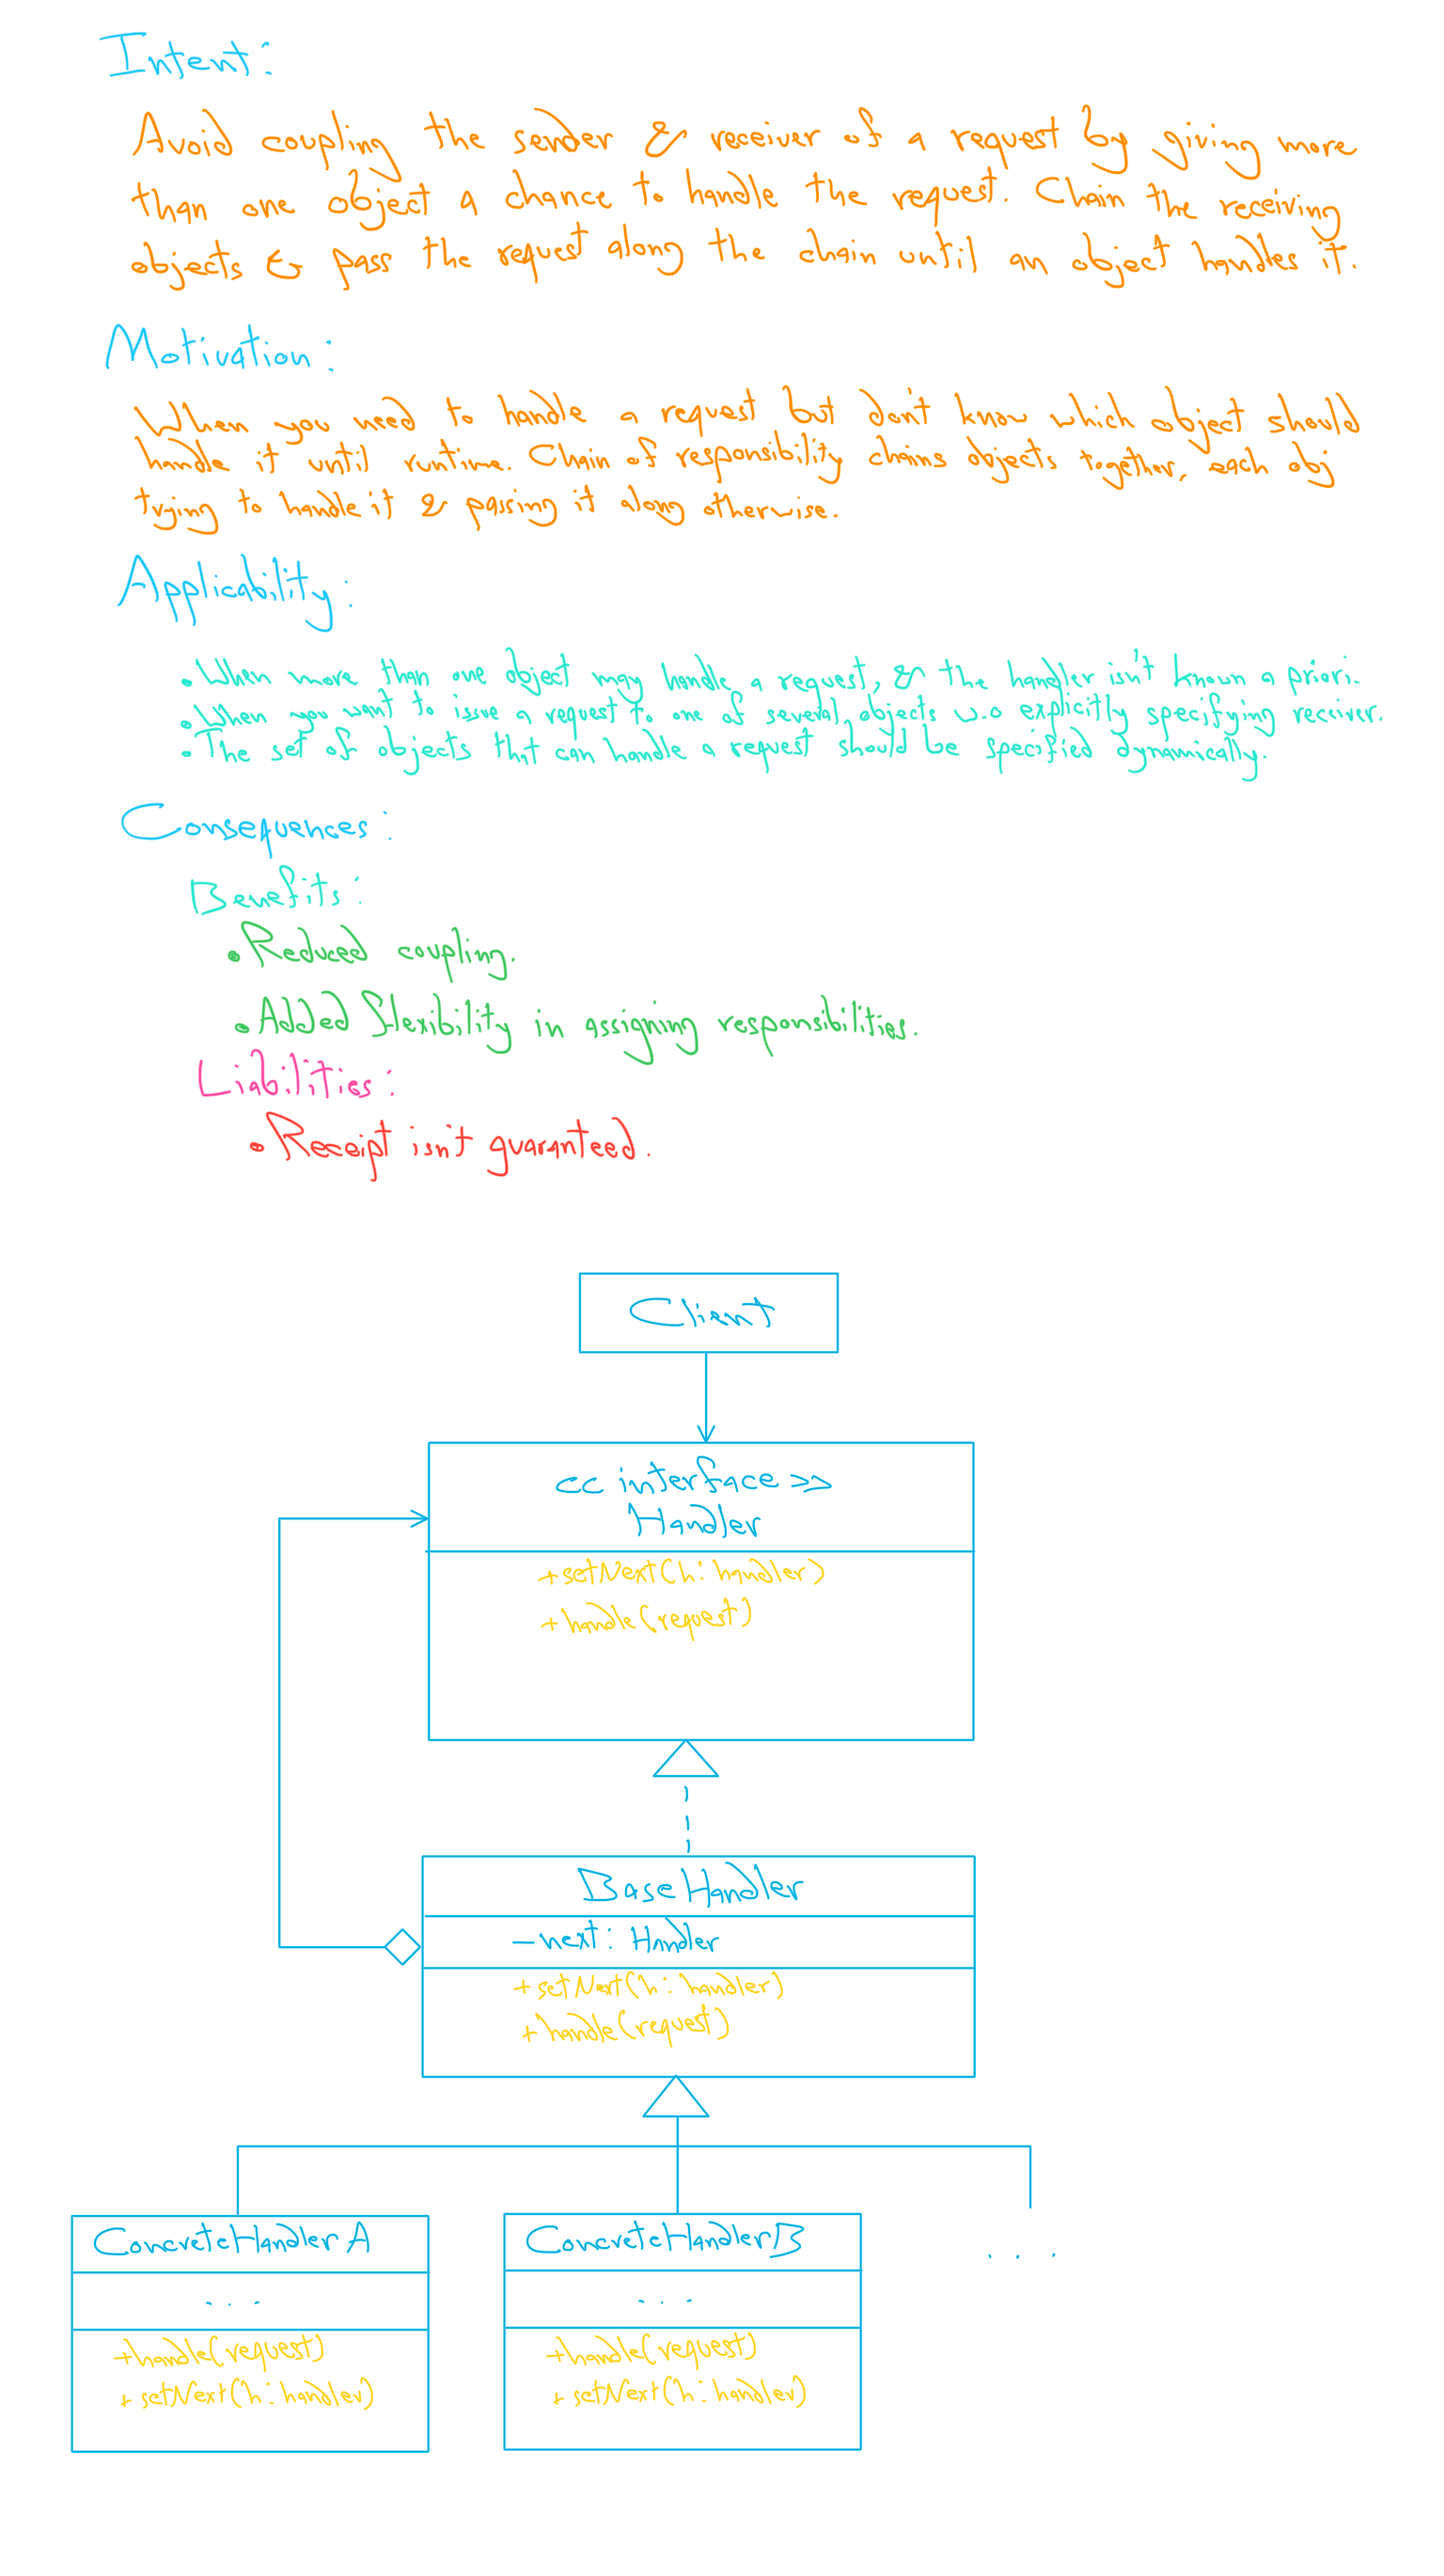 Intent:
Avoid coupling the sender & receiver of a request by giving more
than one object a chance to handle the request. Chain the receiving
objects & pass the request along the chain until an object handles it.
Motivation:
When you need to handle a request but don't know which object should
handle it until runtime. Chain of responsibility chains objects together, each obj
trying to handle it & passing it along otherwise.
Applicability:
• When more than one object may handle a request, & the handler isn't known a priori.
• When you want to issue a request to one of several objects w.o explicitly specifying receiver.
• The set of objects that can handle a request should be specified dynamically.
Consequences:
Benefits:
• Reduced coupling.
• Added flexibility in assigning responsibilities.
Liabilities:
• Receipt isn't guaranteed.
Client
<< interface >>
Handler
+setNext(h: handler)
+handle(request)
BaseHandler
-next: Handler
+setNext(h: handler)
+handle(request)
ConcreteHandlerA
...
+handle(request)
+setNext(h: handler)
ConcreteHandlerB
...
+handle(request)
+setNext(h: handler)
...